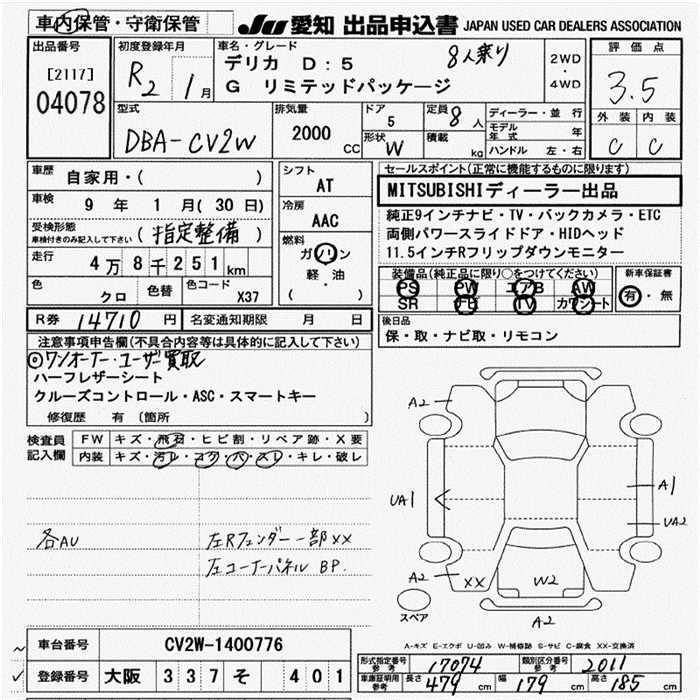 車内保管・守衛保管
JU 愛知 出品申込書 JAPAN USED CAR DEALERS ASSOCIATION
出品番号
[2117]
04078
初度登録年月
R2 1月
車名・グレード
デリカ D：5 8人乗り
G リミテッドパッケージ
2WD
・
4WD
評価点
3.5
外装 内装
C C
型式
DBA-CV2W
排気量
2000 CC
ドア
5
形状 W
定員 8人
積載 kg
ディーラー・並行
モデル年式 年
ハンドル 左・右
車歴
自家用・( )
車検
9 年 1 月 ( 30 日)
受検形態
車検付きのみ記入して下さい (指定整備)
走行
4万8千251km
色 クロ 色替 色コード X37
シフト
AT
冷房
AAC
燃料
ガソリン
軽油
( )
R券 14710 円 名変通知期限 月 日
セールスポイント(正常に機能するものに限ります)
MITSUBISHIディーラー出品
純正9インチナビ・TV・バックカメラ・ETC
両側パワースライドドア・HIDヘッド
11.5インチRフリップダウンモニター
装備品(純正品に限り○をつけてください)
PS PW エアB AW
SR ナビ TV カワシート
新車保証書
有・無
後日品
保・取・ナビ取・リモコン
注意事項申告欄(不具合内容等は具体的に記入して下さい)
◎ワンオーナー・ユーザー買取
ハーフレザーシート
クルーズコントロール・ASC・スマートキー
修復歴 有 (箇所 )
検査員記入欄
FW キズ・飛石・ヒビ割・リペア跡・X要
内装 キズ・汚レ・コゲ・穴・スレ・キレ・破レ
各AU
左Rフェンダー一部XX
左コーナーパネル BP.
A2
UA1
A1
UA2
A2
XX
W2
A2
スペア
A-キズ E-エクボ U-凹み W-補修跡 S-サビ C-腐食 XX-交換済
車台番号 CV2W-1400776
登録番号 大阪 337 そ 401
形式指定番号 参考 17074 類別区分番号 参考 2011
車庫証明用 参考 長さ 479 cm 幅 179 cm 高さ 185 cm